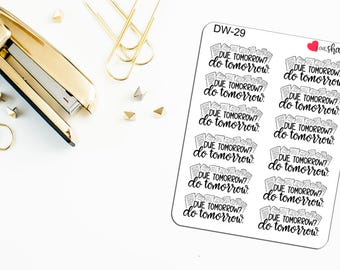 DW-29
DUE TOMORROW?
do tomorrow.
DUE TOMORROW?
do tomorrow.
DUE TOMORROW?
do tomorrow.
DUE TOMORROW?
do tomorrow.
DUE TOMORROW?
do tomorrow.
DUE TOMORROW?
do tomorrow.
DUE TOMORROW?
do tomorrow.
DUE TOMORROW?
do tomorrow.
DUE TOMORROW?
do tomorrow.
DUE TOMORROW?
do tomorrow.
DUE TOMORROW?
do tomorrow.
DUE TOMORROW?
do tomorrow.